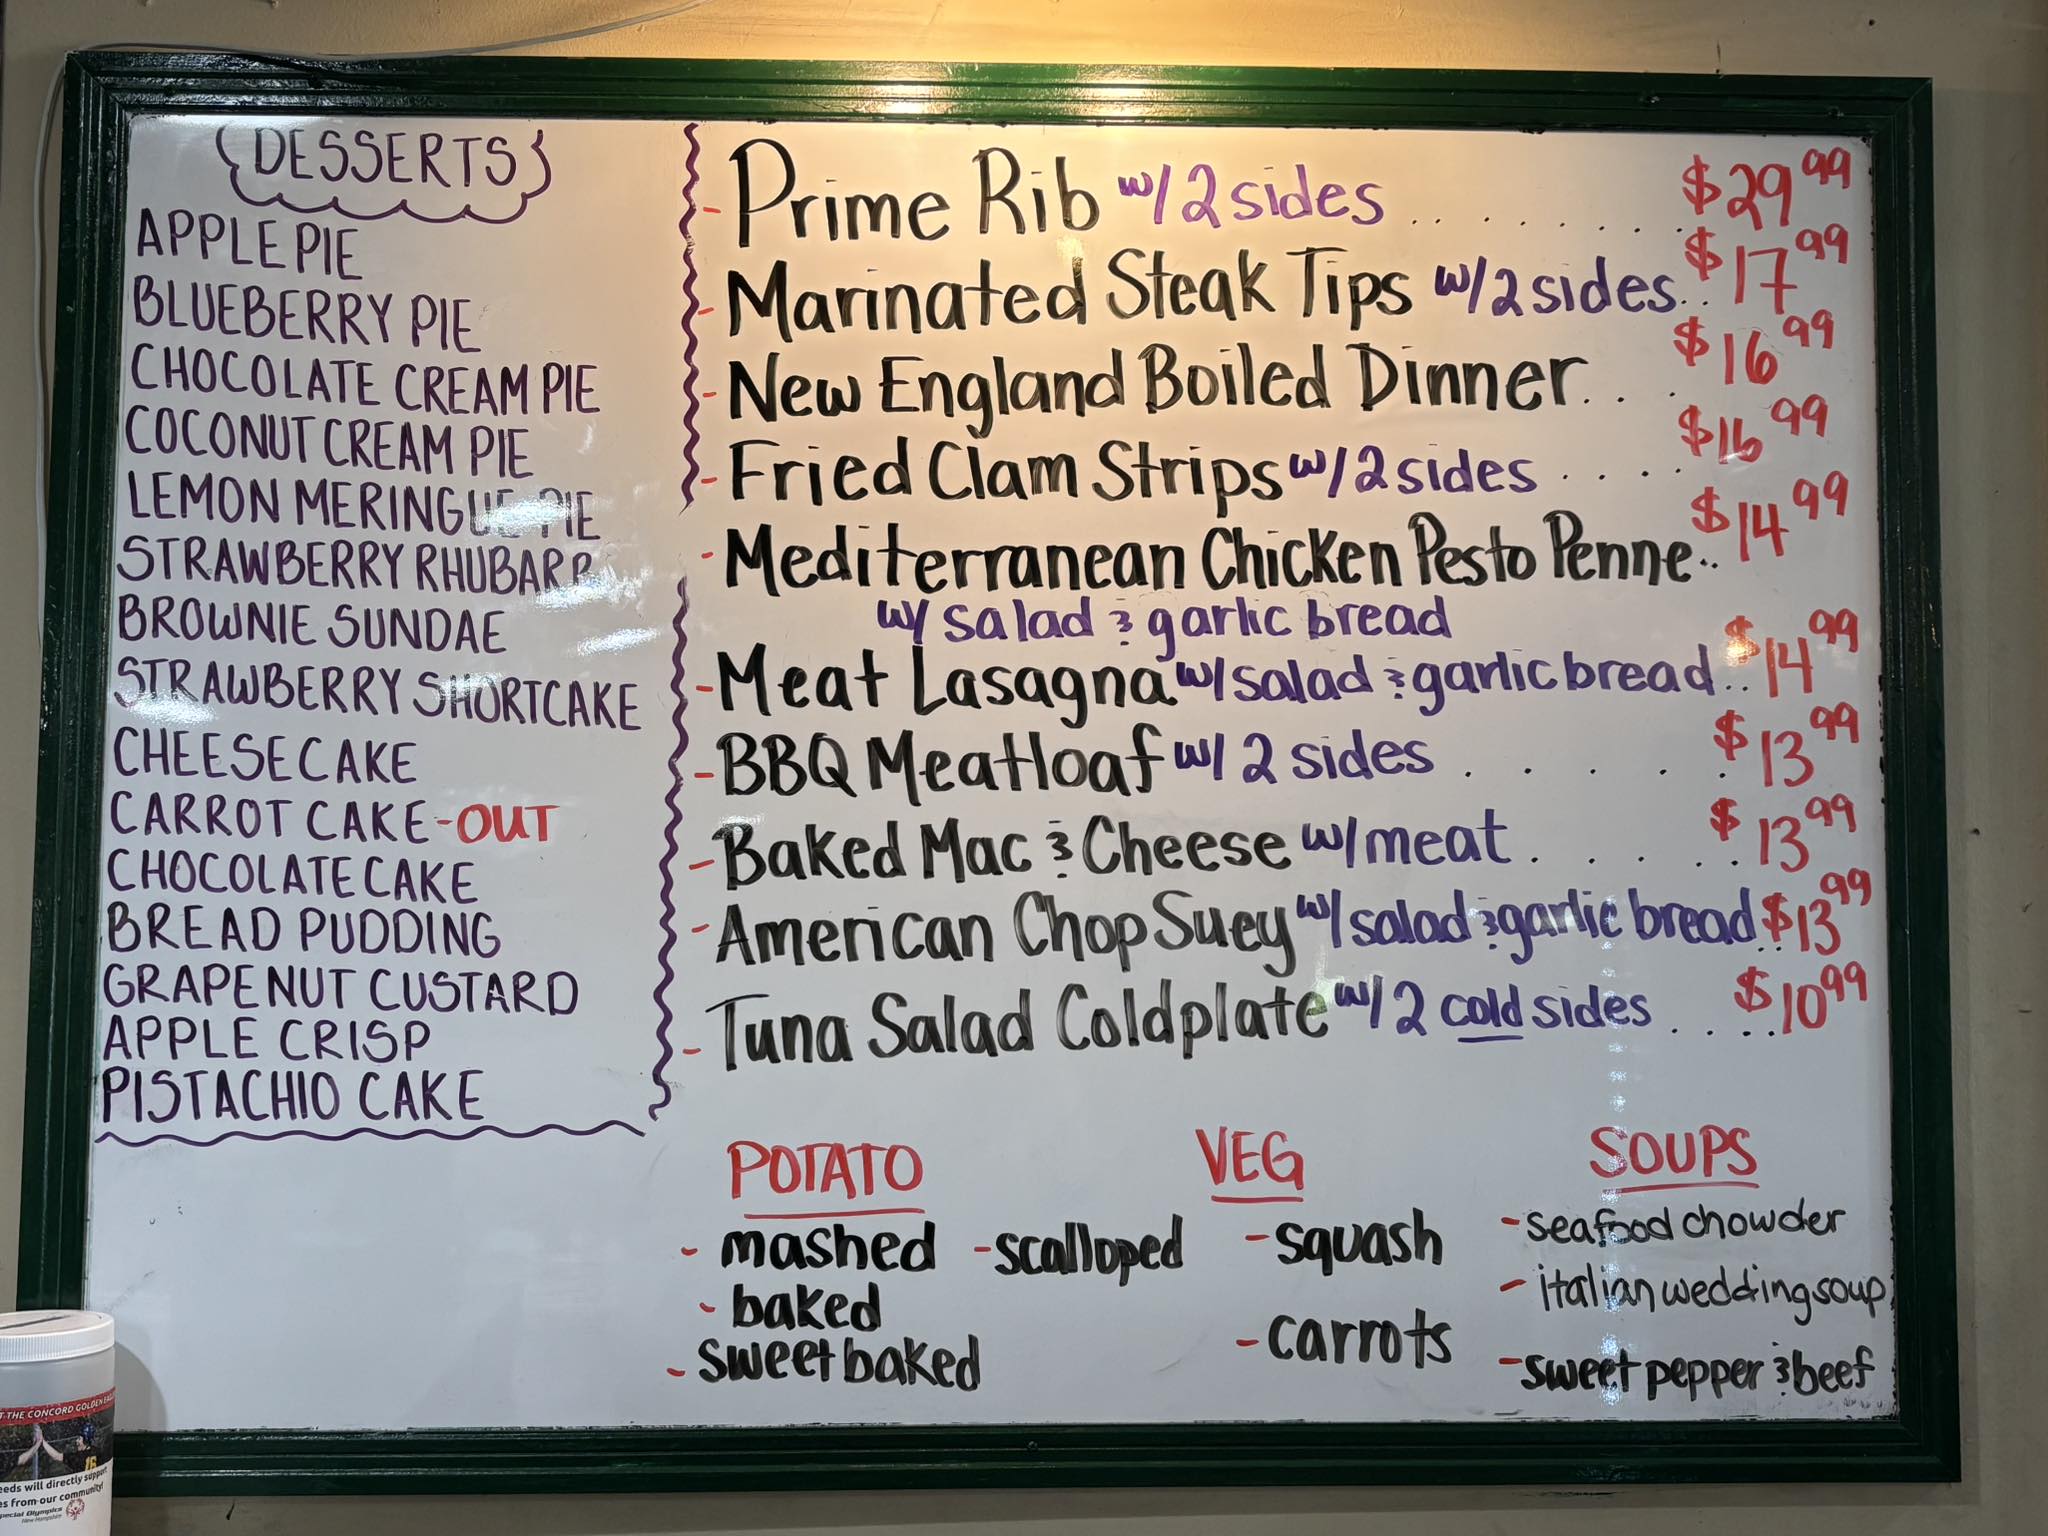 DESSERTS
APPLE PIE
BLUEBERRY PIE
CHOCOLATE CREAM PIE
COCONUT CREAM PIE
LEMON MERINGUE PIE
STRAWBERRY RHUBARB
BROWNIE SUNDAE
STRAWBERRY SHORTCAKE
CHEESECAKE
CARROT CAKE -OUT
CHOCOLATE CAKE
BREAD PUDDING
GRAPENUT CUSTARD
APPLE CRISP
PISTACHIO CAKE
- Prime Rib w/ 2 sides .. . . . . . . $29.99
- Marinated Steak Tips w/ 2 sides... $17.99
- New England Boiled Dinner. . . $16.99
- Fried Clam Strips w/ 2 sides . . . . $16.99
- Mediterranean Chicken Pesto Penne.. $14.99
w/ salad & garlic bread
- Meat Lasagna w/ salad & garlic bread.. $14.99
- BBQ Meatloaf w/ 2 sides . . . . . $13.99
- Baked Mac & Cheese w/ meat . . . . . . $13.99
- American Chop Suey w/ salad & garlic bread.. $13.99
- Tuna Salad Coldplate w/ 2 cold sides ..... $10.99
POTATO
- mashed - scalloped
- baked
- sweet baked
VEG
- squash
- carrots
SOUPS
- seafood chowder
- italian wedding soup
- sweet pepper & beef
THE CONCORD GOLDEN
16
will directly support
from our community!
Special Olympics
New Hampshire